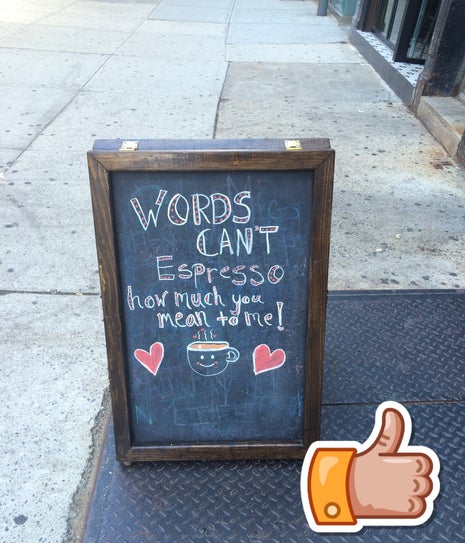 WORDS
CAN'T
ESPRESSO
how much you
mean to me!